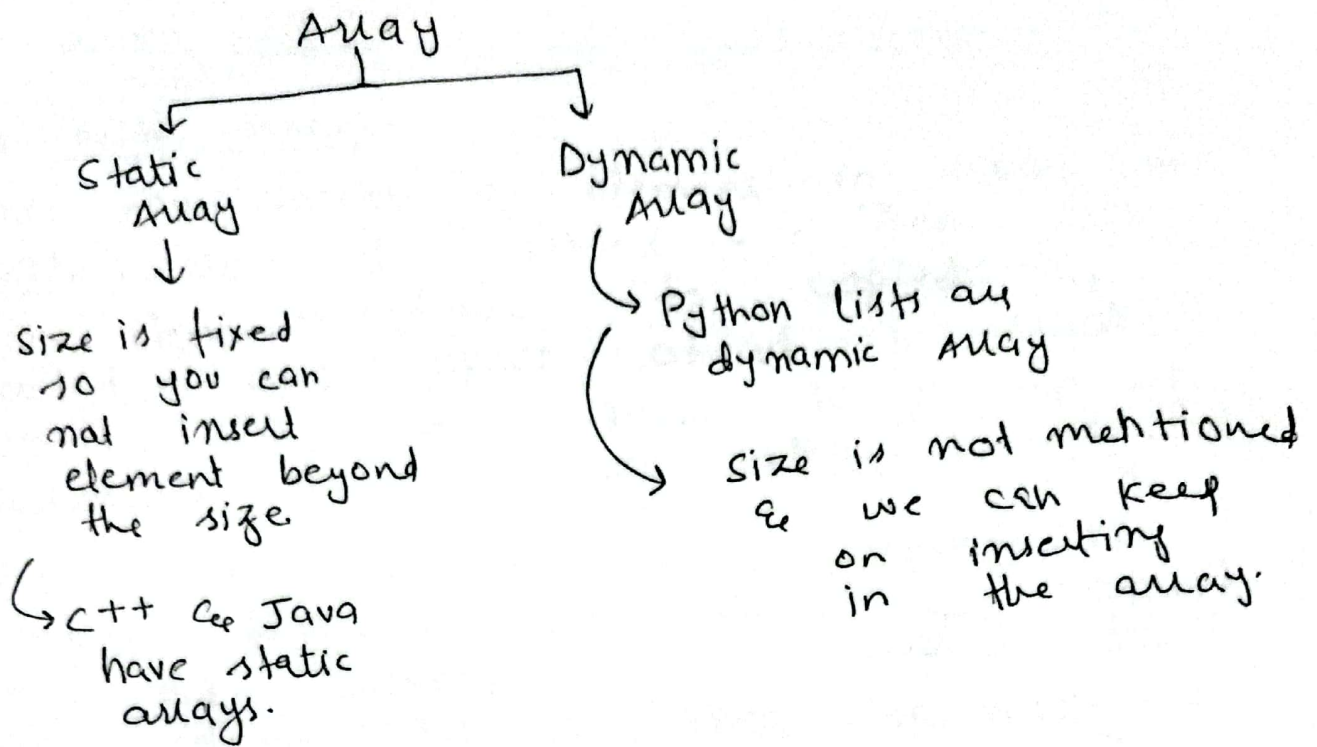 Array
Static
Array
size is fixed
so you can
not insert
element beyond
the size
C++ & Java
have static
arrays.
Dynamic
Array
Python lists are
dynamic Array
size is not mentioned
& we can keep
on inserting
in the array.